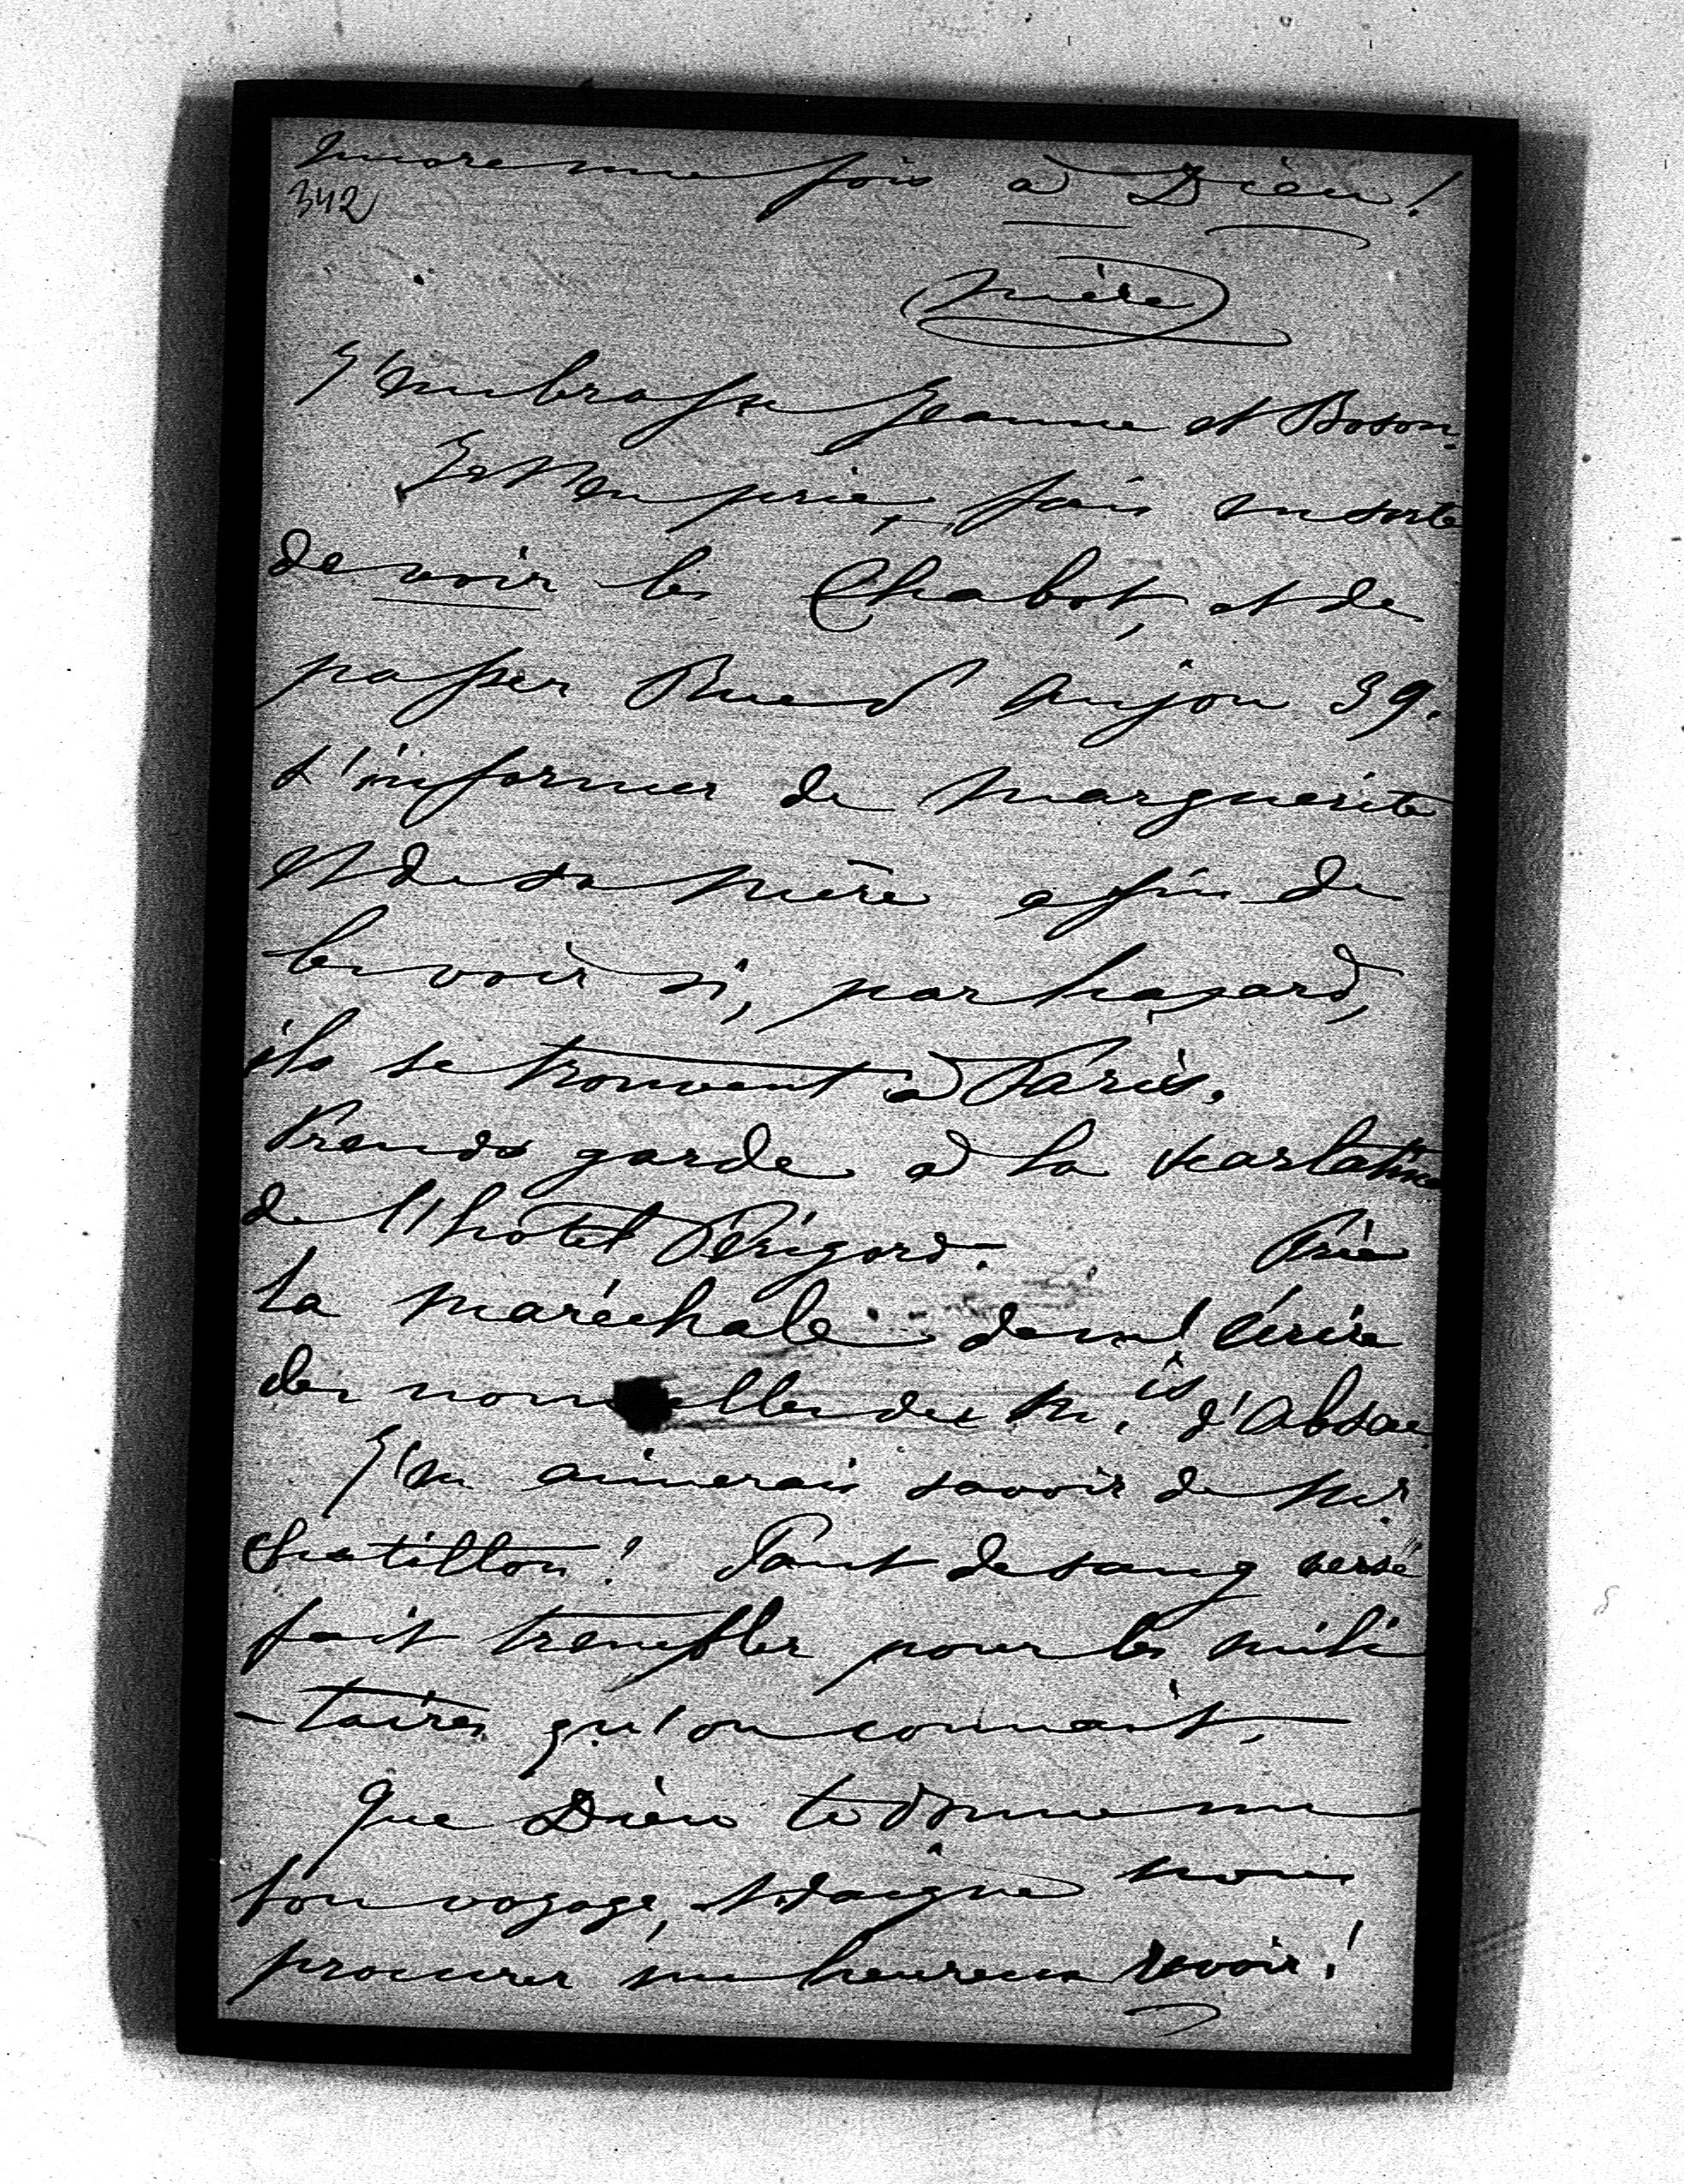 encore une fois à Dieu!
342
mère
J'embrasse Jeanne et Boson.
Je t'en prie, fais en sorte
de voir les Chabot, et de
passer Rue d'Anjou 39.
t'informer de Marguerite
et de sa mère afin de
les voir si, par hazard,
ils se trouvent à Paris.
Prends garde à la scarlatine
de l'hôtel Périgord. Prie
la maréchale de m'écrire
des nouvelles du M.is d'Abzac
J'en aimerais savoir de Mr.
Chatillon! Tant de sang versé
fait trembler pour les mili
-taires qu'on connait.
Que Dieu te donne un
bon voyage, et daigne nous
procurer un heureux revoir!